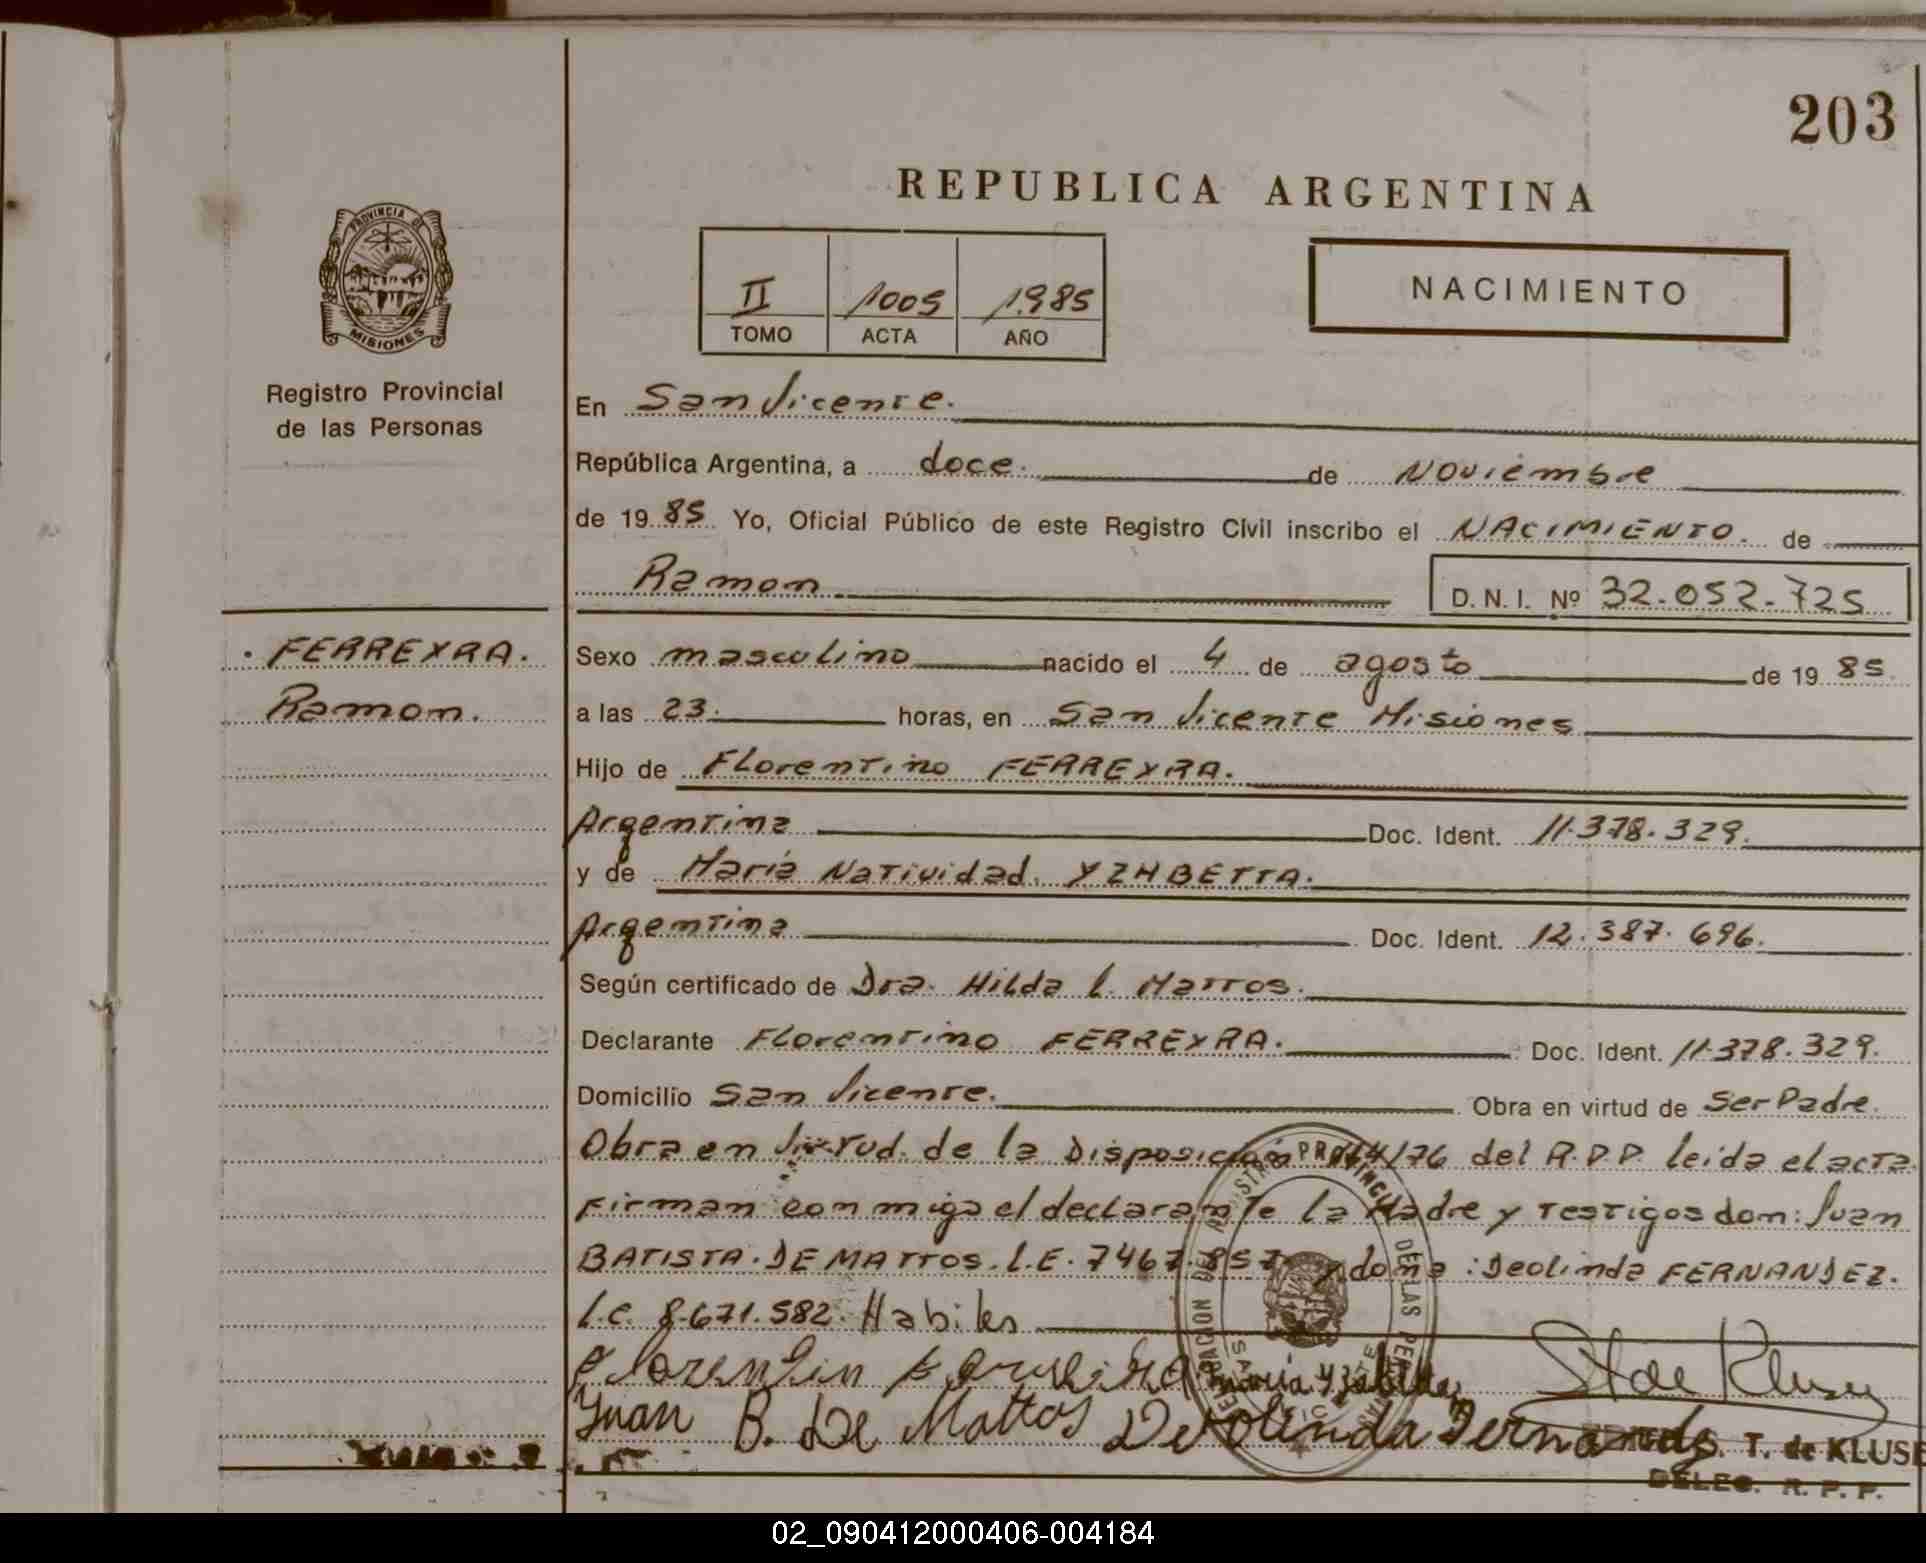 203
REPUBLICA ARGENTINA
PROVINCIA DE MISIONES
Registro Provincial
de las Personas
II 1005 1985
TOMO ACTA AÑO
NACIMIENTO
En San Vicente.
República Argentina, a doce. de Noviembre
de 19 85 Yo, Oficial Público de este Registro Civil inscribo el NACIMIENTO. de
Ramon D. N. I. Nº 32.052.725
FERREYRA.
Ramon.
Sexo masculino nacido el 4 de agosto de 19 85
a las 23. horas, en San Vicente Misiones
Hijo de Florentino FERREYRA.
Argentina Doc. Ident. 11.378.329.
y de María Natividad. YZHBETTA.
Argentina Doc. Ident. 12.387.696.
Según certificado de Dra. Hilda l. Mattos.
Declarante Florentino FERREYRA. Doc. Ident. 11.378.329.
Domicilio San Vicente. Obra en virtud de Ser Padre.
Obra en Virtud. de la Disposición /76 del R.P.P. leída el acta
Firman conmigo el declarante la Madre y testigos don: Juan
BATISTA. DE MATTOS. L.E. 7467.857 y doña: Deolinda FERNANDEZ.
l.c. 8.671.582. Habiles
Juan B. De Mattos Deolinda Fernandez
S. T. de KLUSE
DELEG. R. P. P.
02_090412000406-004184